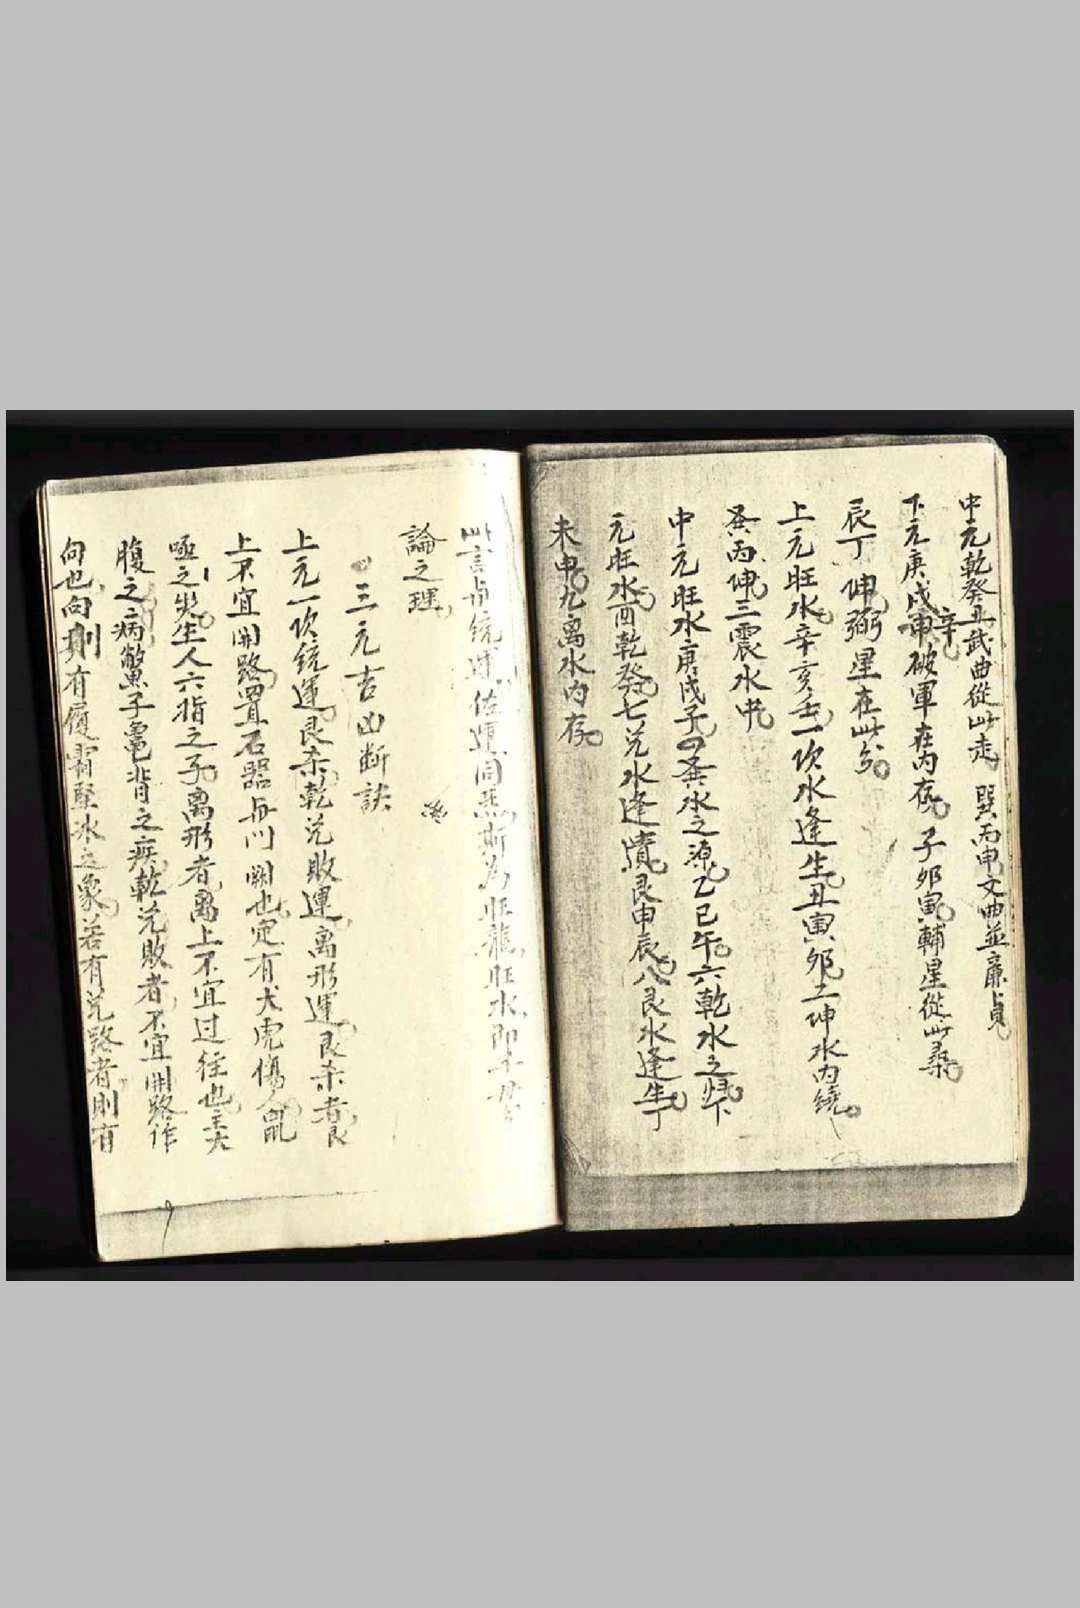 中元乾癸丑武曲從此走巽丙申文曲並廉貞
下元庚戌辛破軍在內存子卯寅輔星從此尋
辰丁坤弼星在此分
上元旺水辛亥壬一坎水逢生丑寅卯二坤水內繞
丙坤三震水中
中元旺水庚戌子四水之源乙巳午六乾水之
元旺水酉乾癸七兌水逢艮申辰八艮水逢生丁
未申九离水內存
統運佐運同為旺龍旺水即
論之理
三元吉凶断訣
上元一坎統運艮杀乾兌敗運离形運艮杀者艮
上不宜開路置石器与门闕也定有犬虎傷人
哑之災生人六指之子离形者离上不宜过往也主大
腹之病鱉子龜背之疾乾兌敗者不宜開路作
向也向則有履霜堅冰之象若有兌路者則有